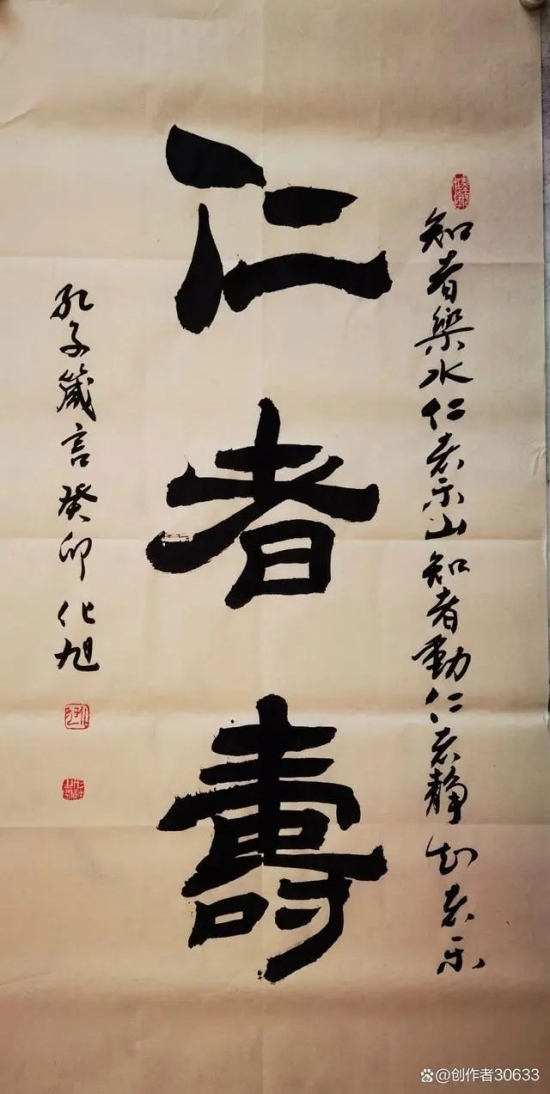 知者樂水仁者乐山知者動仁者静知者乐
仁者壽
孔子箴言癸卯化旭
@创作者30633